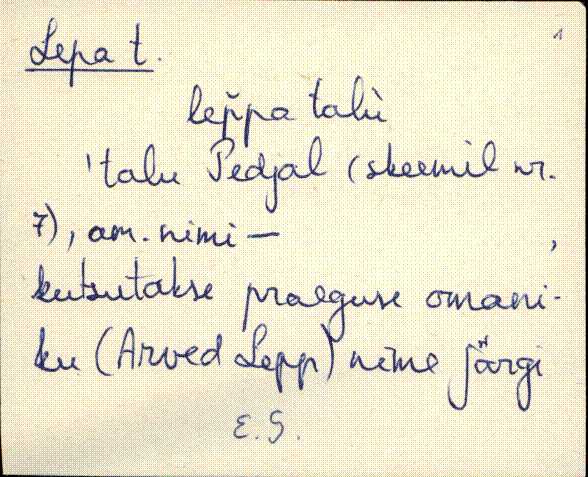 1
Lepa t.
lep̆pa talù
'talu Pedjal (skeemil nr.
7), am. nimi — ,
kutsutakse praeguse omani-
ku (Arved Lepp) nime järgi
E.S.